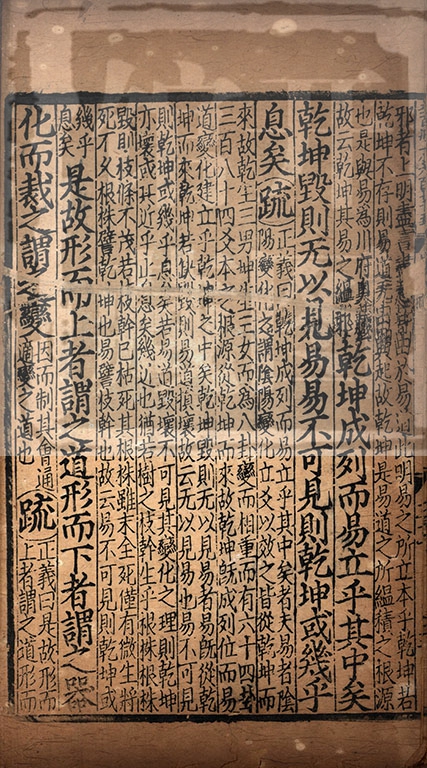 邪者上明盡言盡意皆由於易道此明易之所立本乎乾坤若
乾坤不存則易道无由興起故乾坤是易道之所緼積之根源
也是與易為川府奧藏
故云乾坤其易之緼邪
乾坤成列而易立乎其中矣
乾坤毀則无以見易易不可見則乾坤或幾乎
息矣疏
正義曰乾坤成列而易立乎其中矣者夫易者陰
陽變化之謂陰陽變化立爻以效之皆從乾坤而
來故乾生三男坤生三女而為八卦變而相重而有六十四卦
三百八十四爻本之根源從乾坤而來故乾坤既成列位而易
道變化建立乎乾坤之中矣乾坤毀則无以見易者易既從乾
坤而來乾坤若缺毀則易道損壞故云无以見易也易不可見
則乾坤或幾乎息矣者若易道毀壞不可見其變化之理則乾坤
亦壞或其近乎止息矣幾近也猶若樹之枝幹生乎根株根株
毀則枝條不茂若枝幹已枯死其根株雖未全死僅有微生將
死不久根株譬乾坤也易譬枝幹也故云易不可見則乾坤或
幾乎
息矣
是故形而上者謂之道形而下者謂之器
化而裁之謂之變
因而制其會通
適變之道也
疏
正義曰是故形而
上者謂之道形而